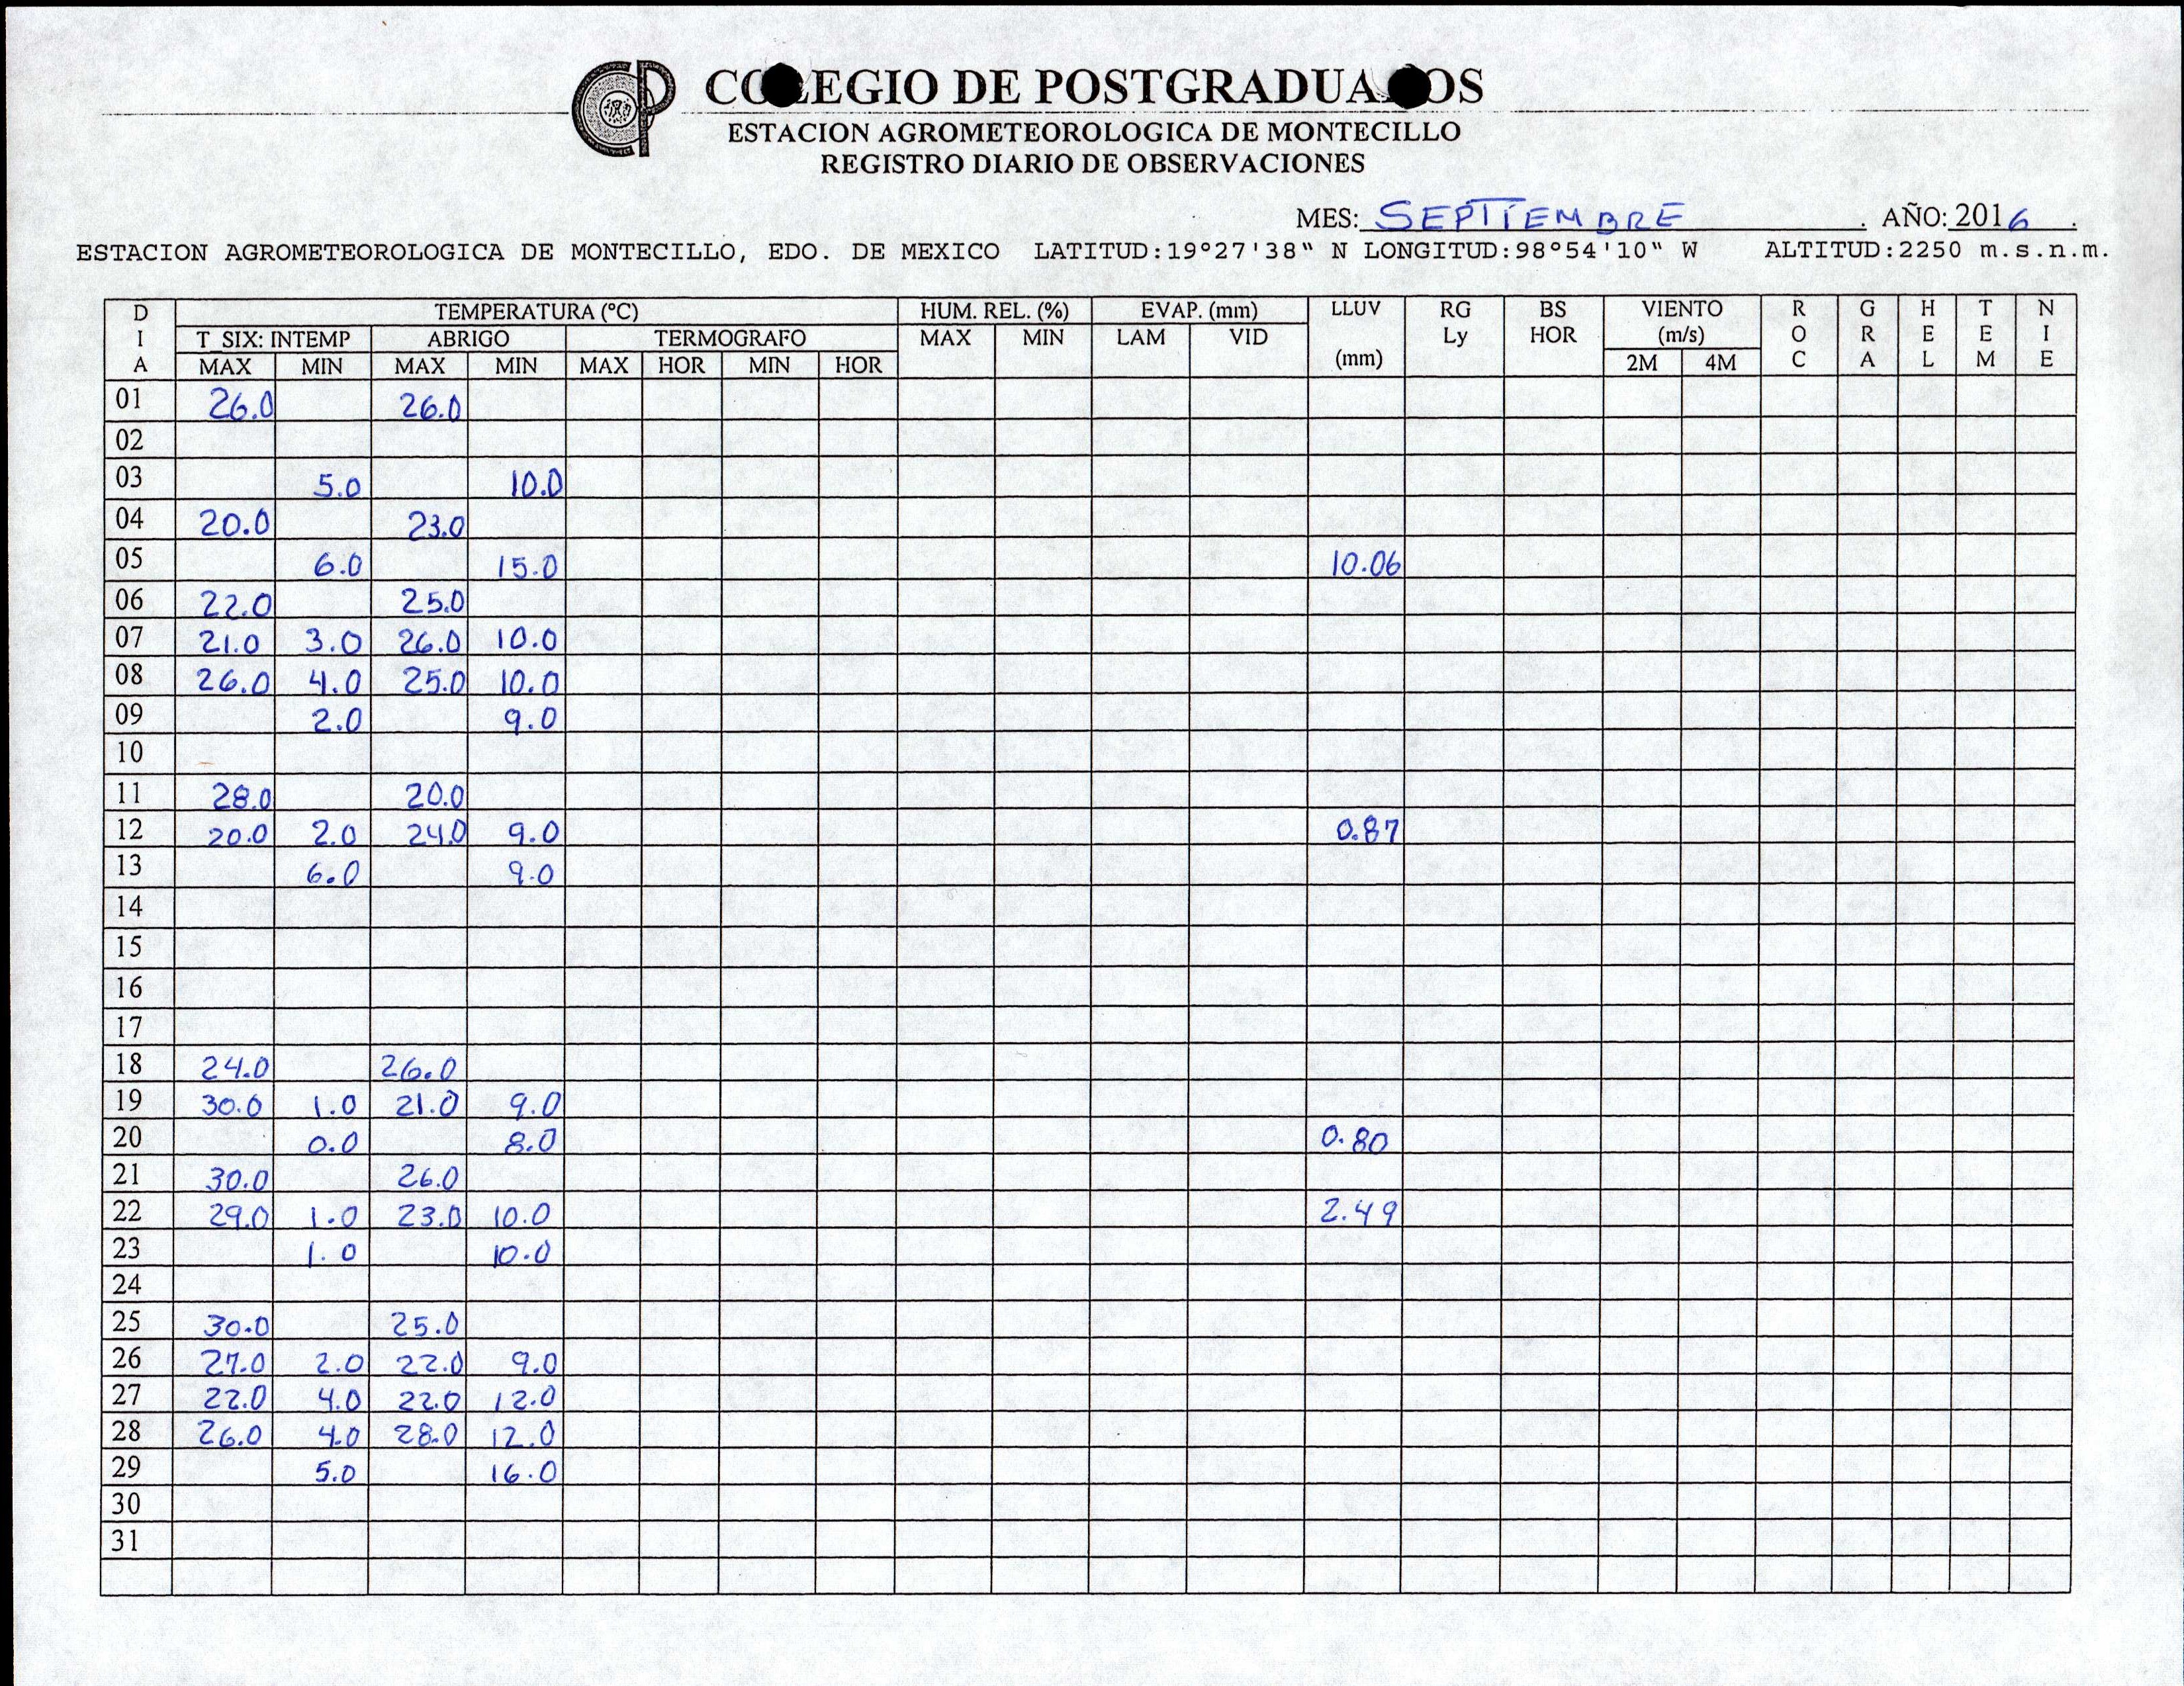 COLEGIO DE POSTGRADUADOS
ESTACION AGROMETEOROLOGICA DE MONTECILLO
REGISTRO DIARIO DE OBSERVACIONES
MES: SEPTIEMBRE . AÑO: 2016 .
ESTACION AGROMETEOROLOGICA DE MONTECILLO, EDO. DE MEXICO LATITUD:19°27'38" N LONGITUD:98°54'10" W ALTITUD:2250 m.s.n.m.
DIA TEMPERATURA (ºC) HUM. REL. (%) EVAP. (mm) LLUV (mm) RG Ly BS HOR VIENTO (m/s) ROC GRA HEL TEM NIE
T SIX: INTEMP ABRIGO TERMOGRAFO MAX MIN LAM VID
MAX MIN MAX MIN MAX HOR MIN HOR 2M 4M
01 26.0 26.0
02
03 5.0 10.0
04 20.0 23.0
05 6.0 15.0 10.06
06 22.0 25.0
07 21.0 3.0 26.0 10.0
08 26.0 4.0 25.0 10.0
09 2.0 9.0
10
11 28.0 20.0
12 20.0 2.0 24.0 9.0 0.87
13 6.0 9.0
14
15
16
17
18 24.0 26.0
19 30.0 1.0 21.0 9.0
20 0.0 8.0 0.80
21 30.0 26.0
22 29.0 1.0 23.0 10.0 2.49
23 1.0 10.0
24
25 30.0 25.0
26 27.0 2.0 22.0 9.0
27 22.0 4.0 22.0 12.0
28 26.0 4.0 28.0 12.0
29 5.0 16.0
30
31